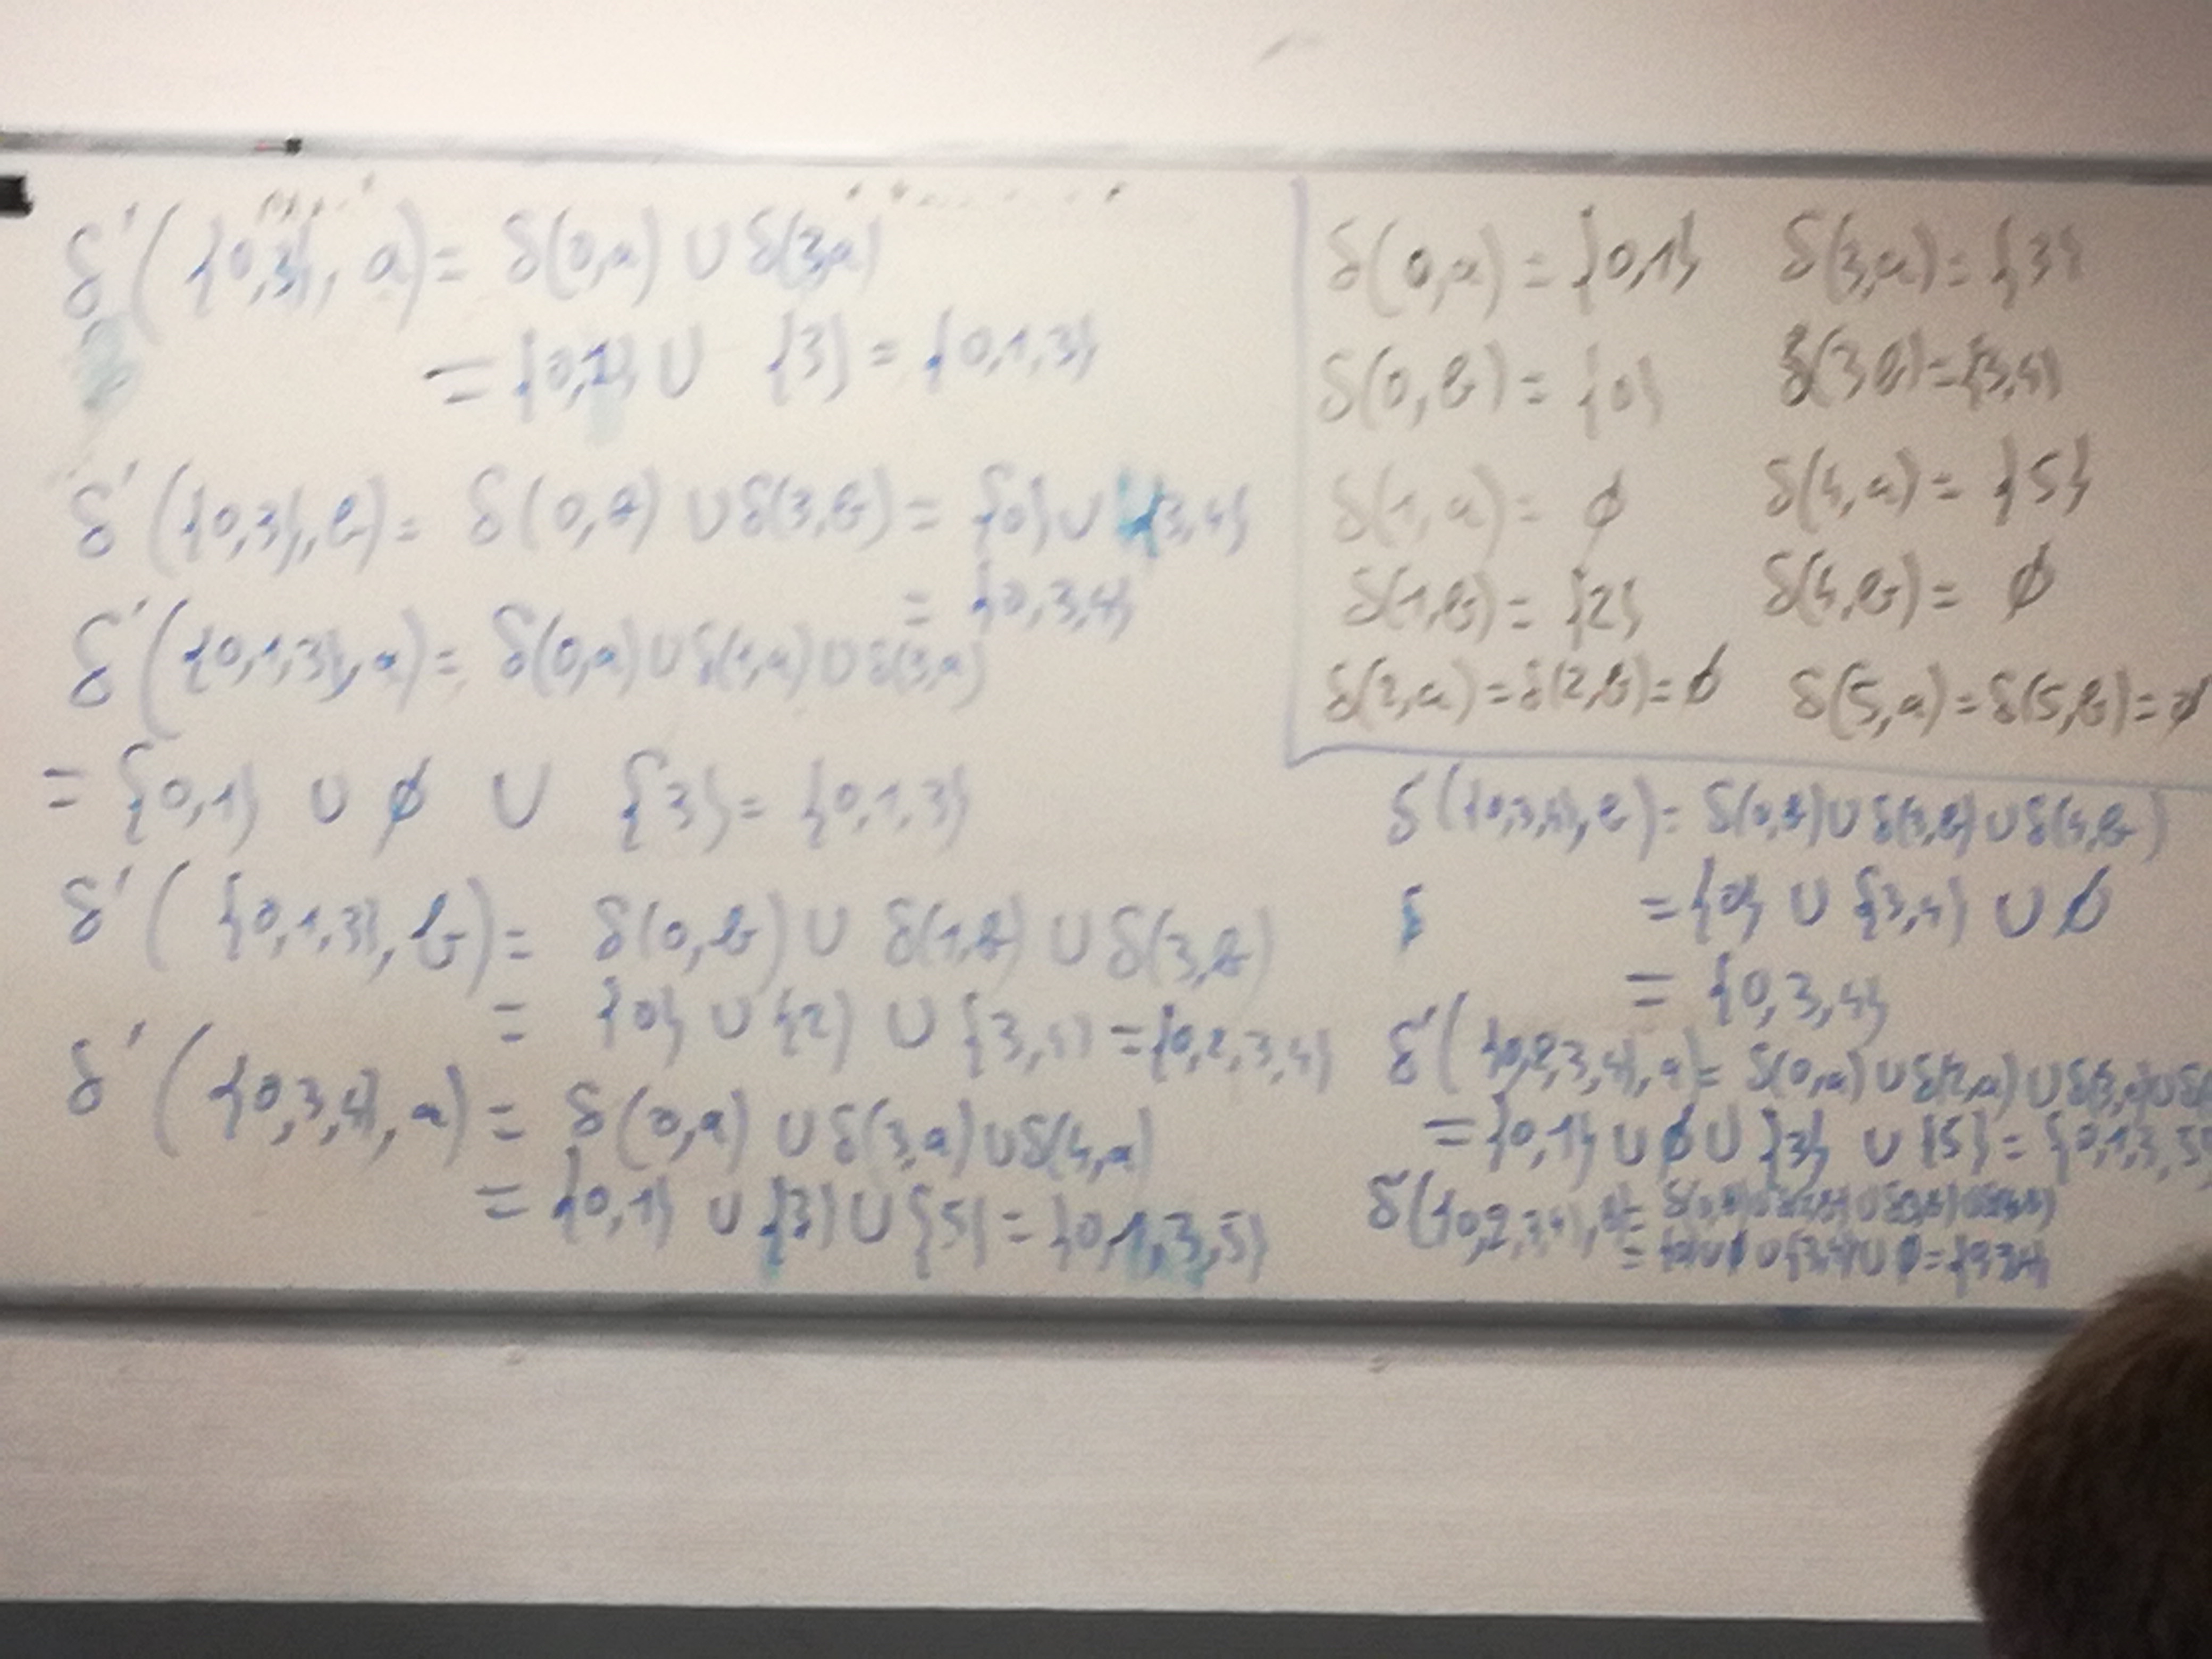 δ'({0,3}, a) = δ(0,a) ∪ δ(3,a)
= {0,1} ∪ {3} = {0,1,3}
δ'({0,3}, b) = δ(0,b) ∪ δ(3,b) = {0} ∪ {3,4}
= {0,3,4}
δ'({0,1,3}, a) = δ(0,a) ∪ δ(1,a) ∪ δ(3,a)
= {0,1} ∪ ∅ ∪ {3} = {0,1,3}
δ'({0,1,3}, b) = δ(0,b) ∪ δ(1,b) ∪ δ(3,b)
= {0} ∪ {2} ∪ {3,4} = {0,2,3,4}
δ'({0,3,4}, a) = δ(0,a) ∪ δ(3,a) ∪ δ(4,a)
= {0,1} ∪ {3} ∪ {5} = {0,1,3,5}
δ(0,a) = {0,1} δ(3,a) = {3}
δ(0,b) = {0} δ(3,b) = {3,4}
δ(1,a) = ∅ δ(4,a) = {5}
δ(1,b) = {2} δ(4,b) = ∅
δ(2,a) = δ(2,b) = ∅ δ(5,a) = δ(5,b) = ∅
δ({0,3,4}, b) = δ(0,b) ∪ δ(3,b) ∪ δ(4,b)
= {0} ∪ {3,4} ∪ ∅
= {0,3,4}
δ'({0,2,3,4}, a) = δ(0,a) ∪ δ(2,a) ∪ δ(3,a) ∪ δ(
= {0,1} ∪ ∅ ∪ {3} ∪ {5} = {0,1,3,5}
δ({0,2,3,4}, b) = δ(0,b) ∪ δ(2,b) ∪ δ(3,b) ∪ δ(4,b)
= {0} ∪ ∅ ∪ {3,4} ∪ ∅ = {0,3,4}